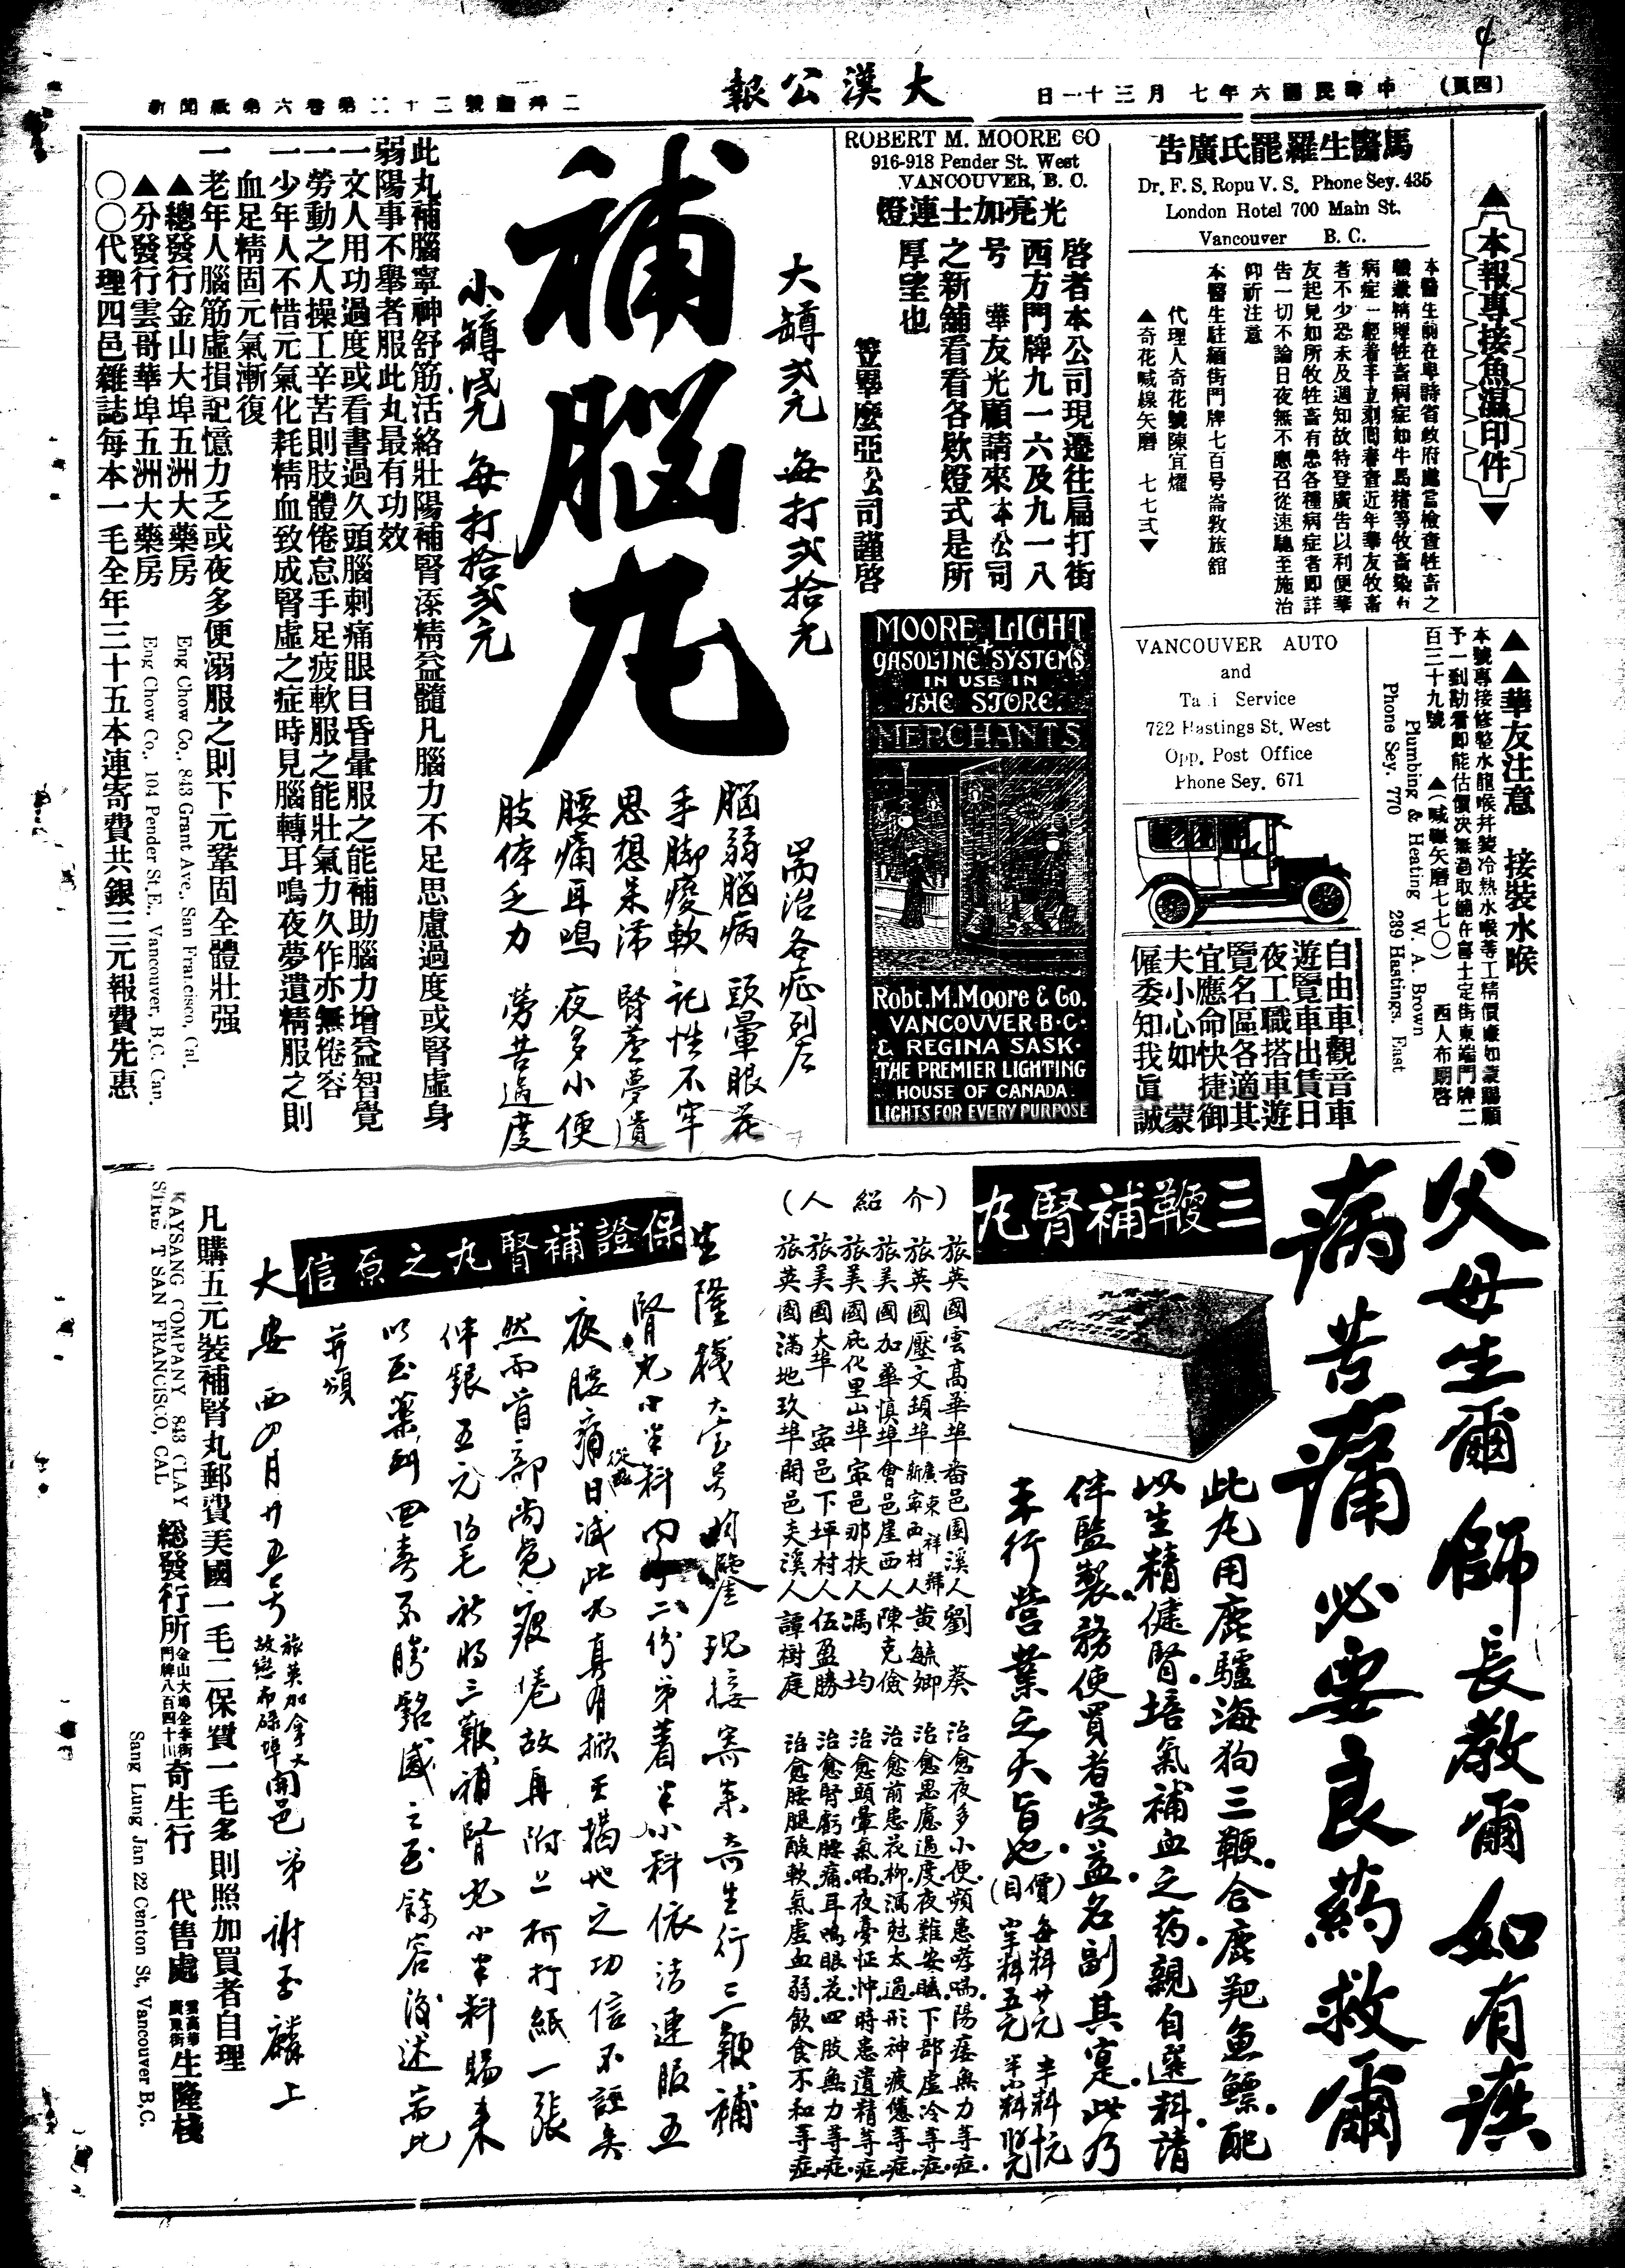 (四頁)
中華民國六年七月三十一日
大漢公報
▲本報專接魚濕印件▼
馬醫生羅罷氏廣告
Dr. F. S. Ropu V. S. Phone Sey. 435
London Hotel 700 Main St.
Vancouver B. C.
者不少恐未及週知故特登廣告以利便華
友起見如所牧牲畜有患各種病症者即詳
告一切不論日夜無不應召從速馳至施治
仰祈注意
本醫生駐緬街門牌七百号崙敦旅館
代理人奇花號陳宜燿
▲奇花喊線矢磨 七七式▼
▲▲華友注意 接裝水喉
本號專接修整水龍喉并裝冷熱水喉等工精價廉如蒙賜顧
予一到勘看即能估價决無過取舖在喜士定街東端門牌二
百三十九號 ▲(喊線矢磨七七〇) 西人布期啓
Plumbing & Heating W. A. Brown
Phone Sey. 770 239 Hastings. East
VANCOUVER AUTO
and
Service
722 Hastings St. West
Opp. Post Office
Phone Sey. 671
自由車觀音車
遊覽車出賃日
夜工職搭車遊
覽名區各適其
宜應命快捷御
夫小心如蒙
僱委知我眞誠
ROBERT M. MOORE CO
916-918 Pender St. West
VANCOUVER, B. C.
光亮加士連燈
啓者本公司現遷往扁打街
西方門牌九一六及九一八
号 華友光顧請來本公司
之新舖看看各欵燈式是所
厚望也
笠畢麼亞公司謹啓
MOORE LIGHT
GASOLINE SYSTEMS
IN USE IN
THE STORE.
MERCHANTS
Robt. M. Moore & Co.
VANCOUVER·B·C·
& REGINA SASK·
THE PREMIER LIGHTING
HOUSE OF CANADA.
LIGHTS FOR EVERY PURPOSE
大罇弍元 每打弍拾元
補腦丸
小罇 每打拾弍元
耑治各症列左
腦弱腦病 頭暈眼花
手脚痠軟 記性不牢
思想呆滯 腎虛夢遺
腰痛耳鳴 夜多小便
肢体乏力 勞苦過度
此丸補腦寧神舒筋活絡壯陽補腎添精益髓凡腦力不足思慮過度或腎虛身
弱陽事不舉者服此丸最有功效
一文人用功過度或看書過久頭腦刺痛眼目昏暈服之能補助腦力增益智覺
一勞動之人操工辛苦則肢體倦怠手足疲軟服之能壯氣力久作亦無倦容
一少年人不惜元氣化耗精血致成腎虛之症時見腦轉耳鳴夜夢遺精服之則
血足精固元氣漸復
一老年人腦筋虛損記憶力乏或夜多便溺服之則下元鞏固全體壯强
▲總發行金山大埠五洲大藥房 Eng Chow Co., 843 Grant Ave., San Francisco, Cal.
▲分發行雲哥華埠五洲大藥房 Eng Chow Co., 104 Pender St. E., Vancouver, B.C. Can.
〇〇代理四邑雜誌每本一毛全年三十五本連寄費共銀三元報費先惠
父母生爾 師長教爾 如有疾
病苦痛 必要良葯救爾
三鞭補腎丸
此丸用鹿驢海狗三鞭合鹿羓魚鰾配
以生精健腎培氣補血之葯親自選料請
伴監製務使買者受益名副其寔此乃
本行營業之大旨也
(價目) 每料廿元
(介紹人)
旅英國雲高華埠番邑園溪人劉葵 治愈夜多小便頻患哮喘陽痿無力等症
旅英國壓文頓埠新寧西村人黃毓卿 治愈思慮過度夜難安眠下部虛冷等症
旅美國加華慎埠會邑崖西人陳克儉 治愈前患花柳瀉尅太過形神疲憊等症
旅美國庇化里山埠寧邑那扶人馮均 治愈頭暈氣喘夜憂怔忡時患遺精等症
旅美國大埠 寧邑下坪村人伍盈勝 治愈腎虧腰痛耳鳴眼花四肢無力等症
旅英國滿地玖埠開邑夫溪人譚樹庭 治愈腰腿酸軟氣虛血弱飲食不和等症
保證補腎丸之原信
生隆棧大宝号均鑒現接寄來奇生行三鞭補
腎丸小半料內 二份弟着半小科依法連服五
夜腰痛日減此丸真有掀天揭地之功信不誣矣
然而首部尚覺疲倦故再附上柯打紙一張
伸銀五元 祈將三鞭補腎丸小半料賜來
以至藥到回春不勝銘感之至餘容後述耑此
并頌
大安 西四月廿五号 旅英加拿大 開邑弟謝丕麟上
凡購五元裝補腎丸郵費美國一毛二保費一毛名則照加買者自理
KAYSANG COMPANY 843 CLAY
STREET SAN FRANCISCO, CAL
總發行所 奇生行 代售處 雲高華廣東街 生隆棧
Sang Lung Jan 22 Canton St, Vancouver B,C.